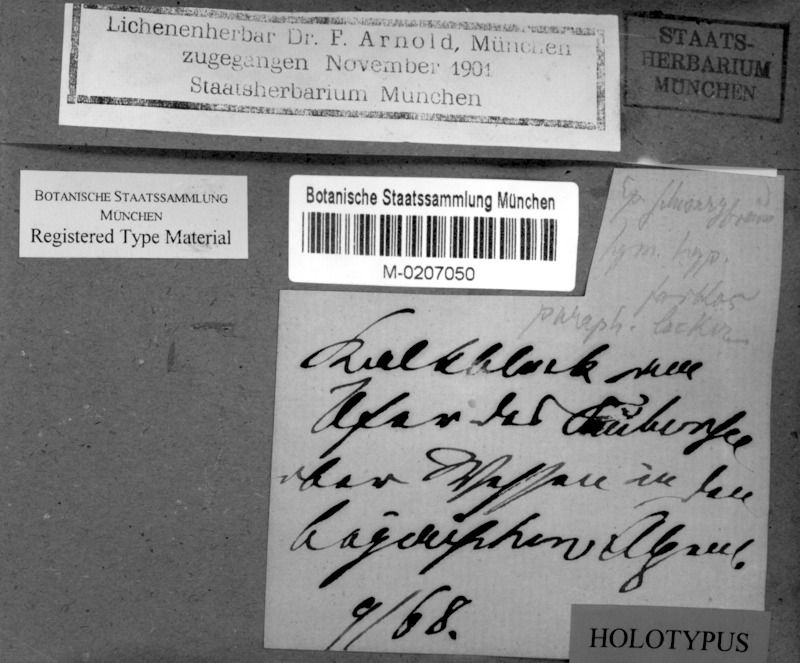 Lichenenherbar Dr. F. Arnold, München
zugegangen November 1901
Staatsherbarium München
STAATS-
HERBARIUM
MÜNCHEN
BOTANISCHE STAATSSAMMLUNG
MÜNCHEN
Registered Type Material
Botanische Staatssammlung München
M-0207050
Ep.
hym. hyp.
farblos
paraph. locker
Kalkblock am
Ufer des
ober Wessen in den
bayerischen Alpen.
9/68.
HOLOTYPUS